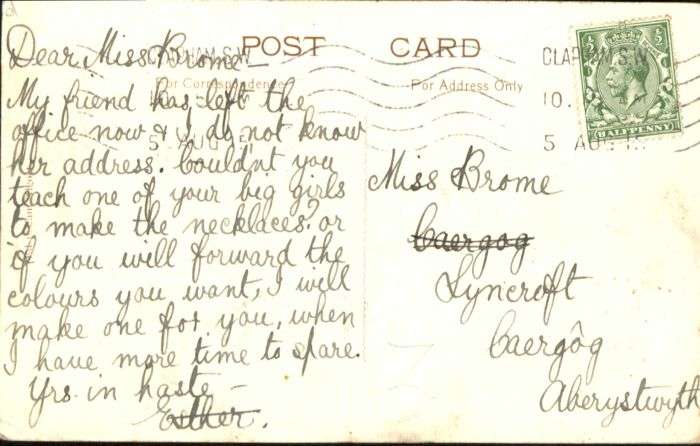 POST CARD
For Correspondence
For Address Only
CLAPHAM S.W.
5 AUG
CLAPHAM S.W
10.
AM
5 AUG
HALFPENNY
Dear Miss Brome –
My friend has left the
office now & I do not know
her address. Could'nt you
teach one of your big girls
to make the necklaces? or
if you will forward the
colours you want, I will
make one for you, when
I have more time to spare.
Yrs in haste –
Esther.
Miss Brome
Caergog
Lyncroft
Caergôg
Aberystwyth